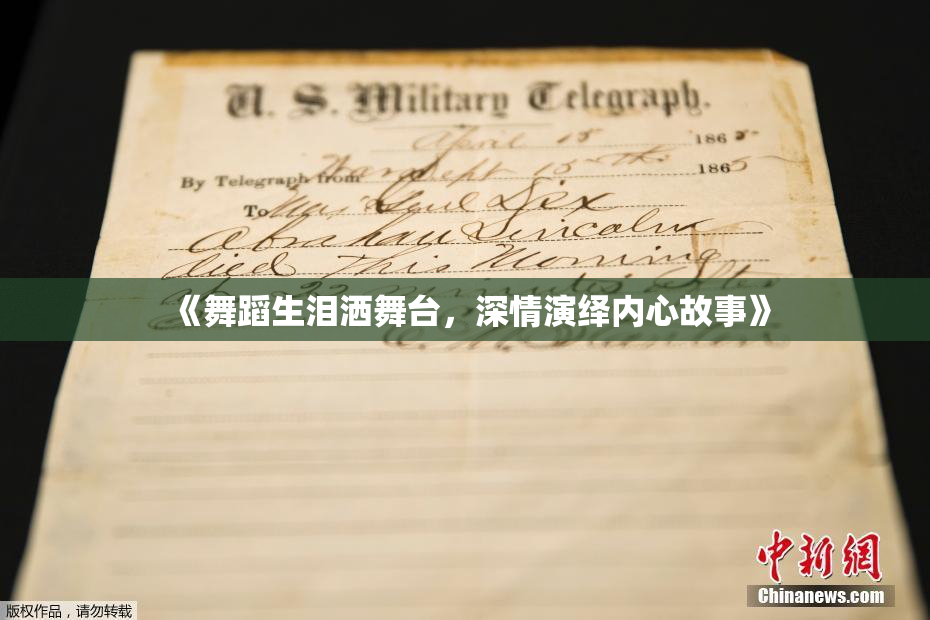 U. S. Military Telegraph.
April 15 1865
By Telegraph from War Dept 15th 1865
To Maj Genl Dix
Abraham Lincoln
died This Morning
22 minutes after
《舞蹈生泪洒舞台，深情演绎内心故事》
E. M. Stanton
中新網
Chinanews.com
版权作品，请勿转载